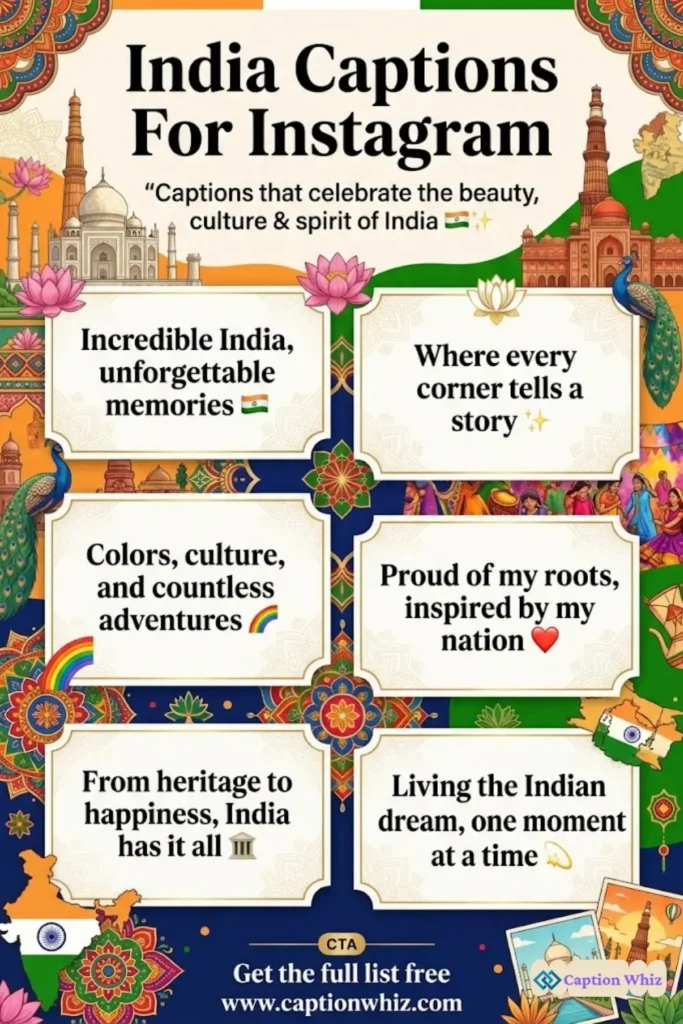 India Captions
For Instagram
“Captions that celebrate the beauty,
culture & spirit of India 🇮🇳✨
Incredible India,
unforgettable
memories 🇮🇳
Where every
corner tells a
story ✨
Colors, culture,
and countless
adventures 🌈
Proud of my roots,
inspired by my
nation ❤️
From heritage to
happiness, India
has it all 🏛️
Living the Indian
dream, one moment
at a time 💫
CTA
Get the full list free
www.captionwhiz.com
Caption Whiz